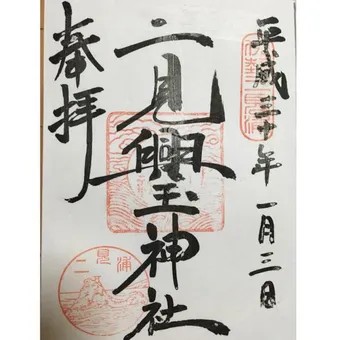 平成三十年一月三日
二見興玉神社
奉拝
二見浦